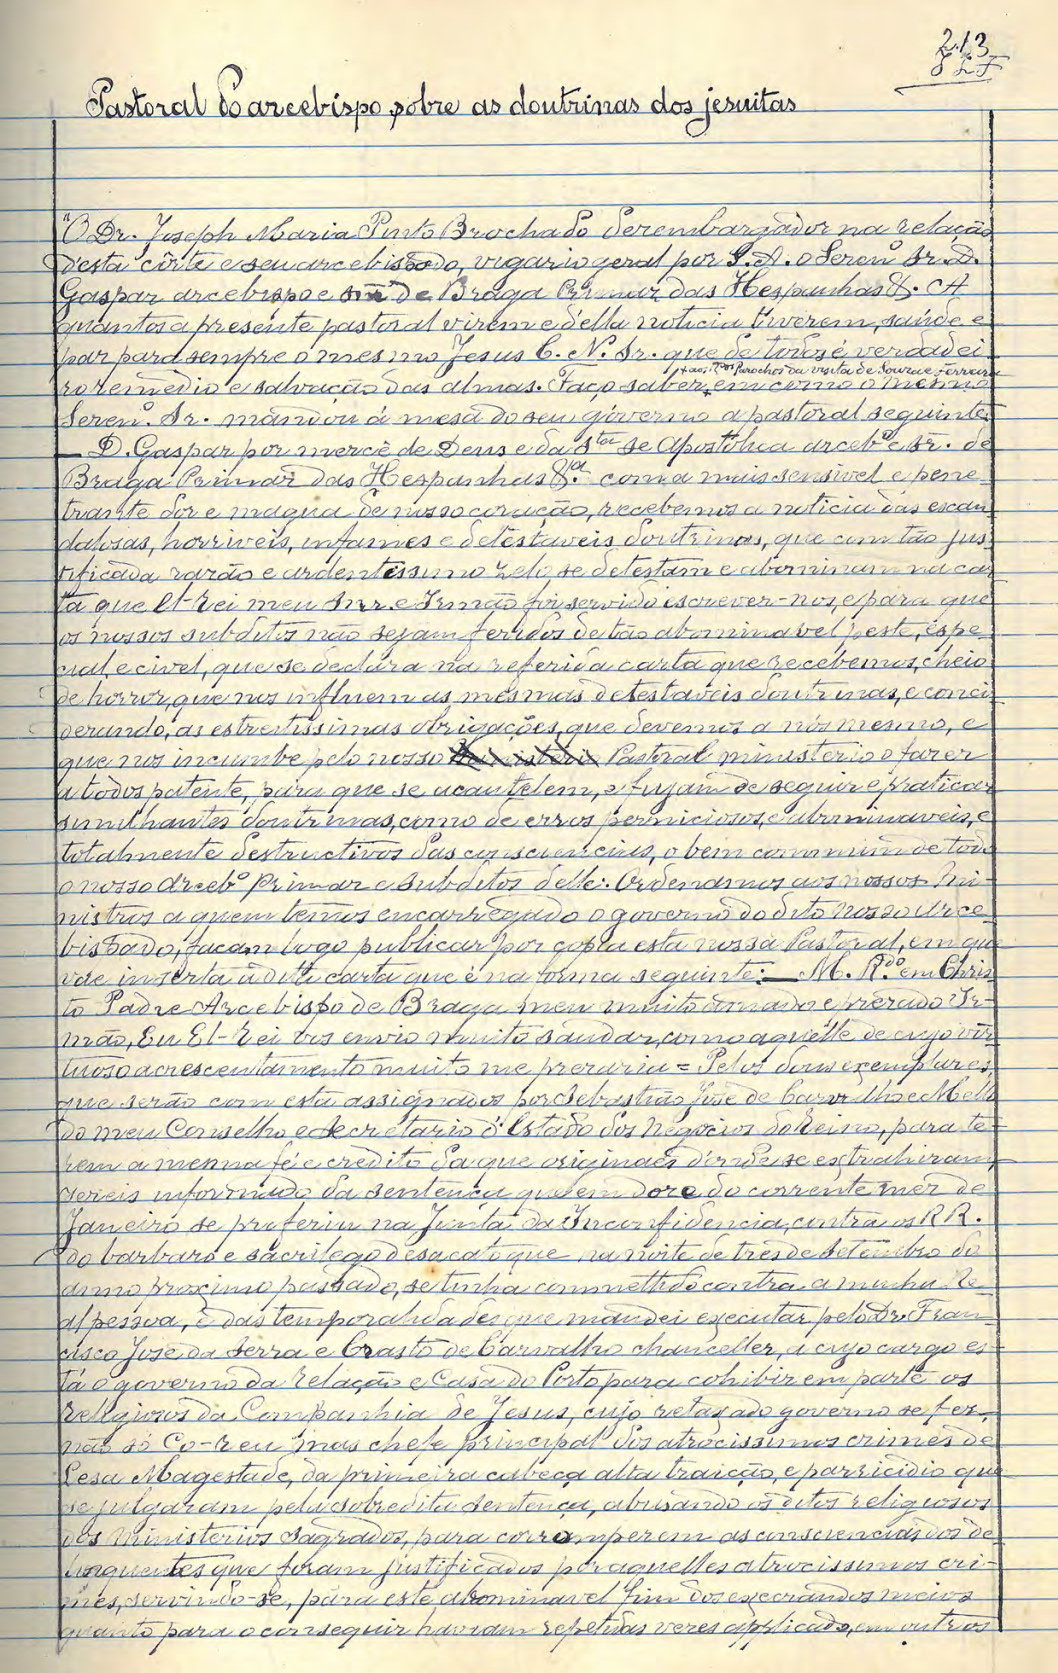 213
Pastoral do arcebispo sobre as doutrinas dos jesuitas
"O Dr. Joseph Maria Pinto Brochado desembargador na relação
d'esta côrte e seu arcebispado, vigario geral por S. A. o Seren.º Sr. D.
Gaspar arcebispo e snr de Braga Primaz das Hespanhas &. A
quantos a presente pastoral virem e d'ella noticia tiverem, saúde e
paz para sempre o mesmo Jesus C. N. Sr. que de todos é verdadei
+ aos R.dos Parochos da visita de Souza e Ferreira
ro remedio e salvação das almas. Faço saber + em como o mesmo
Seren.º Sr. mandou á mesa do seu governo a pastoral seguinte:
— D. Gaspar por mercê de Deus e da S.ta se Apostolica arceb.º e sr. de
Braga Primaz das Hespanhas &.a com a mais sensivel e pene
trante dor e magua de nosso coração, recebemos a noticia das escan
dalosas, horriveis, infames e detestaveis doutrinas, que com tão jus
tificada razão e ardentissimo zelo se detestam e abominam na car
ta que El-rei meu Snr. e Irmão foi servido escrever-nos, e para que
os nossos subditos não sejam feridos de tão abominavel peste, espe
cial, e civel, que se declara na referida carta que recebemos, cheio
de horror, que nos influem as mesmas detestaveis doutrinas, e conci
derando, as estreitissimas obrigações, que devemos a nós mesmo, e
que nos incumbe pelo nosso Pastoral ministerio o fazer
a todos patente, para que se acautelem, e fujam de seguir e praticar
similhantes doutrinas, como de erros perniciosos, e abominaveis, e
totalmente destructivos das consciencias, o bem commum de todo
o nosso Arceb.º Primaz e subditos delle: Ordenamos aos nossos Mi-
nistros a quem temos encarregado o governo do dito nosso Arce-
bispado, façam logo publicar por copia esta nossa Pastoral, em que
vae inserta a dita carta que é na forma seguinte: — M. R.do em Chris
to Padre Arcebispo de Braga meu muito amado e prezado Ir-
mão, Eu El-Rei vos envio muito saudar, como aquelle de cujo vir
tuoso acrescentamento muito me prezaria = Pelos dous exemplares,
que serão com esta assignados por Sebastião José de Carvalho e Mello
do meu Conselho e Secretario d'Estado dos Negocios do Reino, para te-
rem a mesma fé e credito da que originaes d'onde se extrahiram,
sereis informado da sentença que em doze do corrente mez de
Janeiro se proferiu na Junta da Inconfidencia, contra os RR.
do barbaro e sacrilego desacato que na noite de tres de Setembro do
anno proximo passado, se tinha commettido contra a minha Re
al pessoa, e das temporalidades que mandei executar pelo Dr. Fran
cisco José da Serra e Crasto de Carvalho chanceller, a cujo cargo es-
tá o governo da Relação e Casa do Porto para cohibir em parte os
religiosos da Companhia de Jesus, cujo relaxado governo se fez,
não só Co-reu mas chefe principal dos atrocissimos crimes de
Lesa Magestade, da primeira cabeça alta traição, e parricidio que
se julgaram pela sobredita sentença, abusando os ditos religiosos
dos ministerios sagrados, para corromperem as consciencias dos de
linquentes que foram justificados por aquelles atrocissimos cri-
mes, servindo-se, para este abominavel fim dos execrandos meios
quanto para o conseguir haviam repetidas vezes applicado, em outros